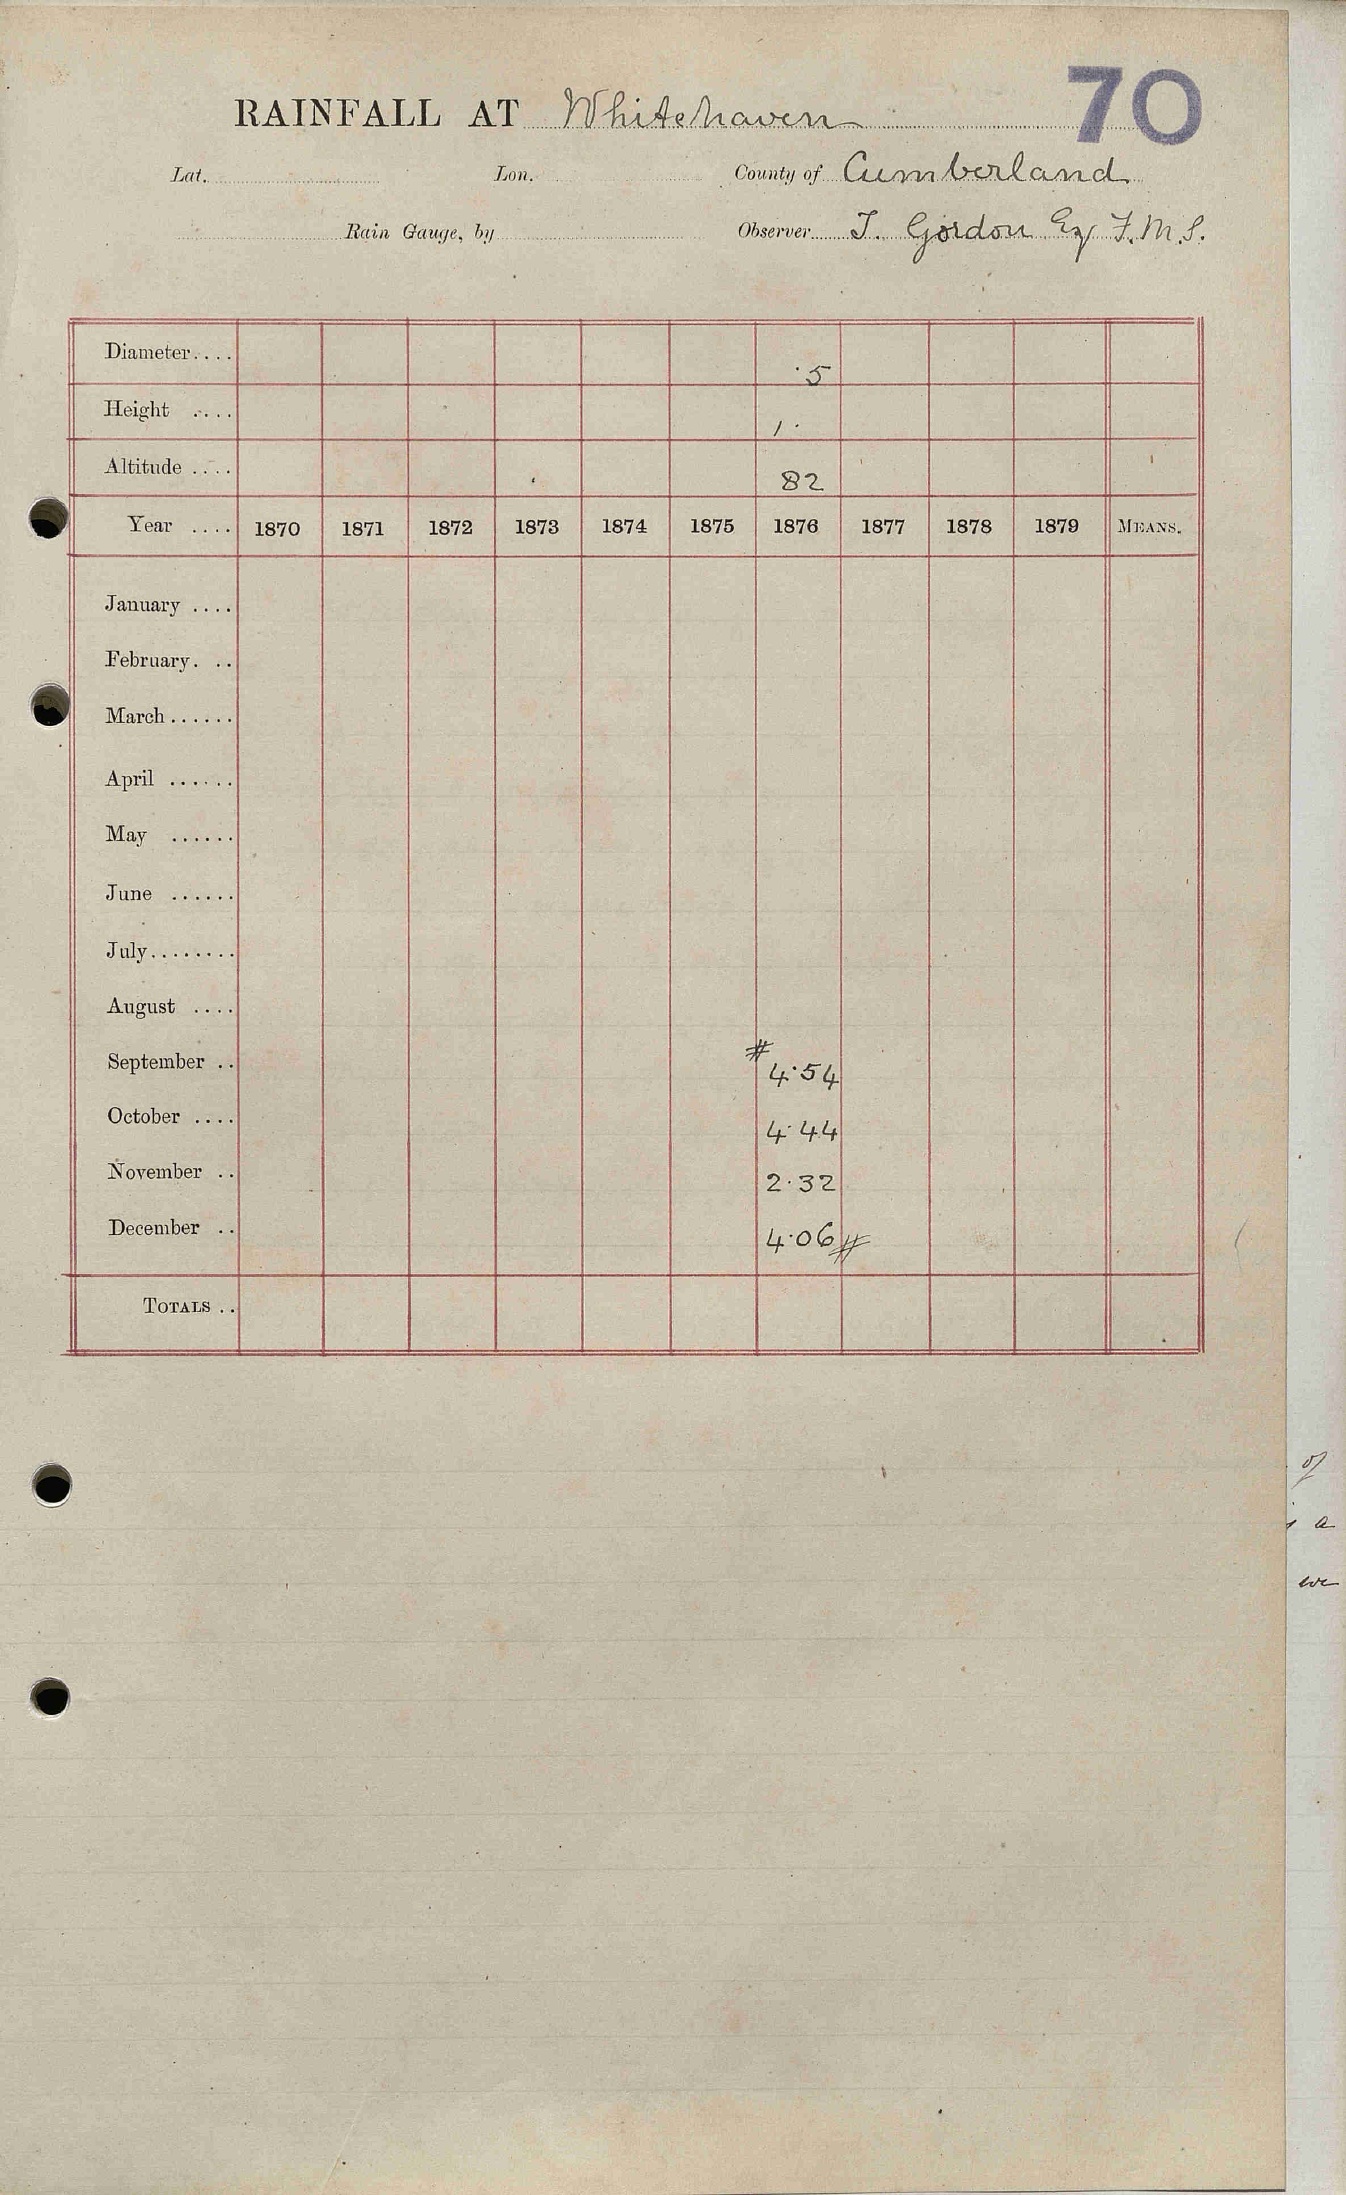 70
RAINFALL AT Whitehaven
Lat. Lon. County of Cumberland
Rain Gauge, by Observer T. Gordon Esq F.M.S.
Diameter.... ·5
Height .... 1·
Altitude .... 82
Year .... 1870 1871 1872 1873 1874 1875 1876 1877 1878 1879 MEANS.
January ....
February. ..
March......
April ......
May ......
June ......
July........
August ....
September .. # 4·54
October .... 4·44
November .. 2·32
December .. 4·06 #
TOTALS ..
of
a
we